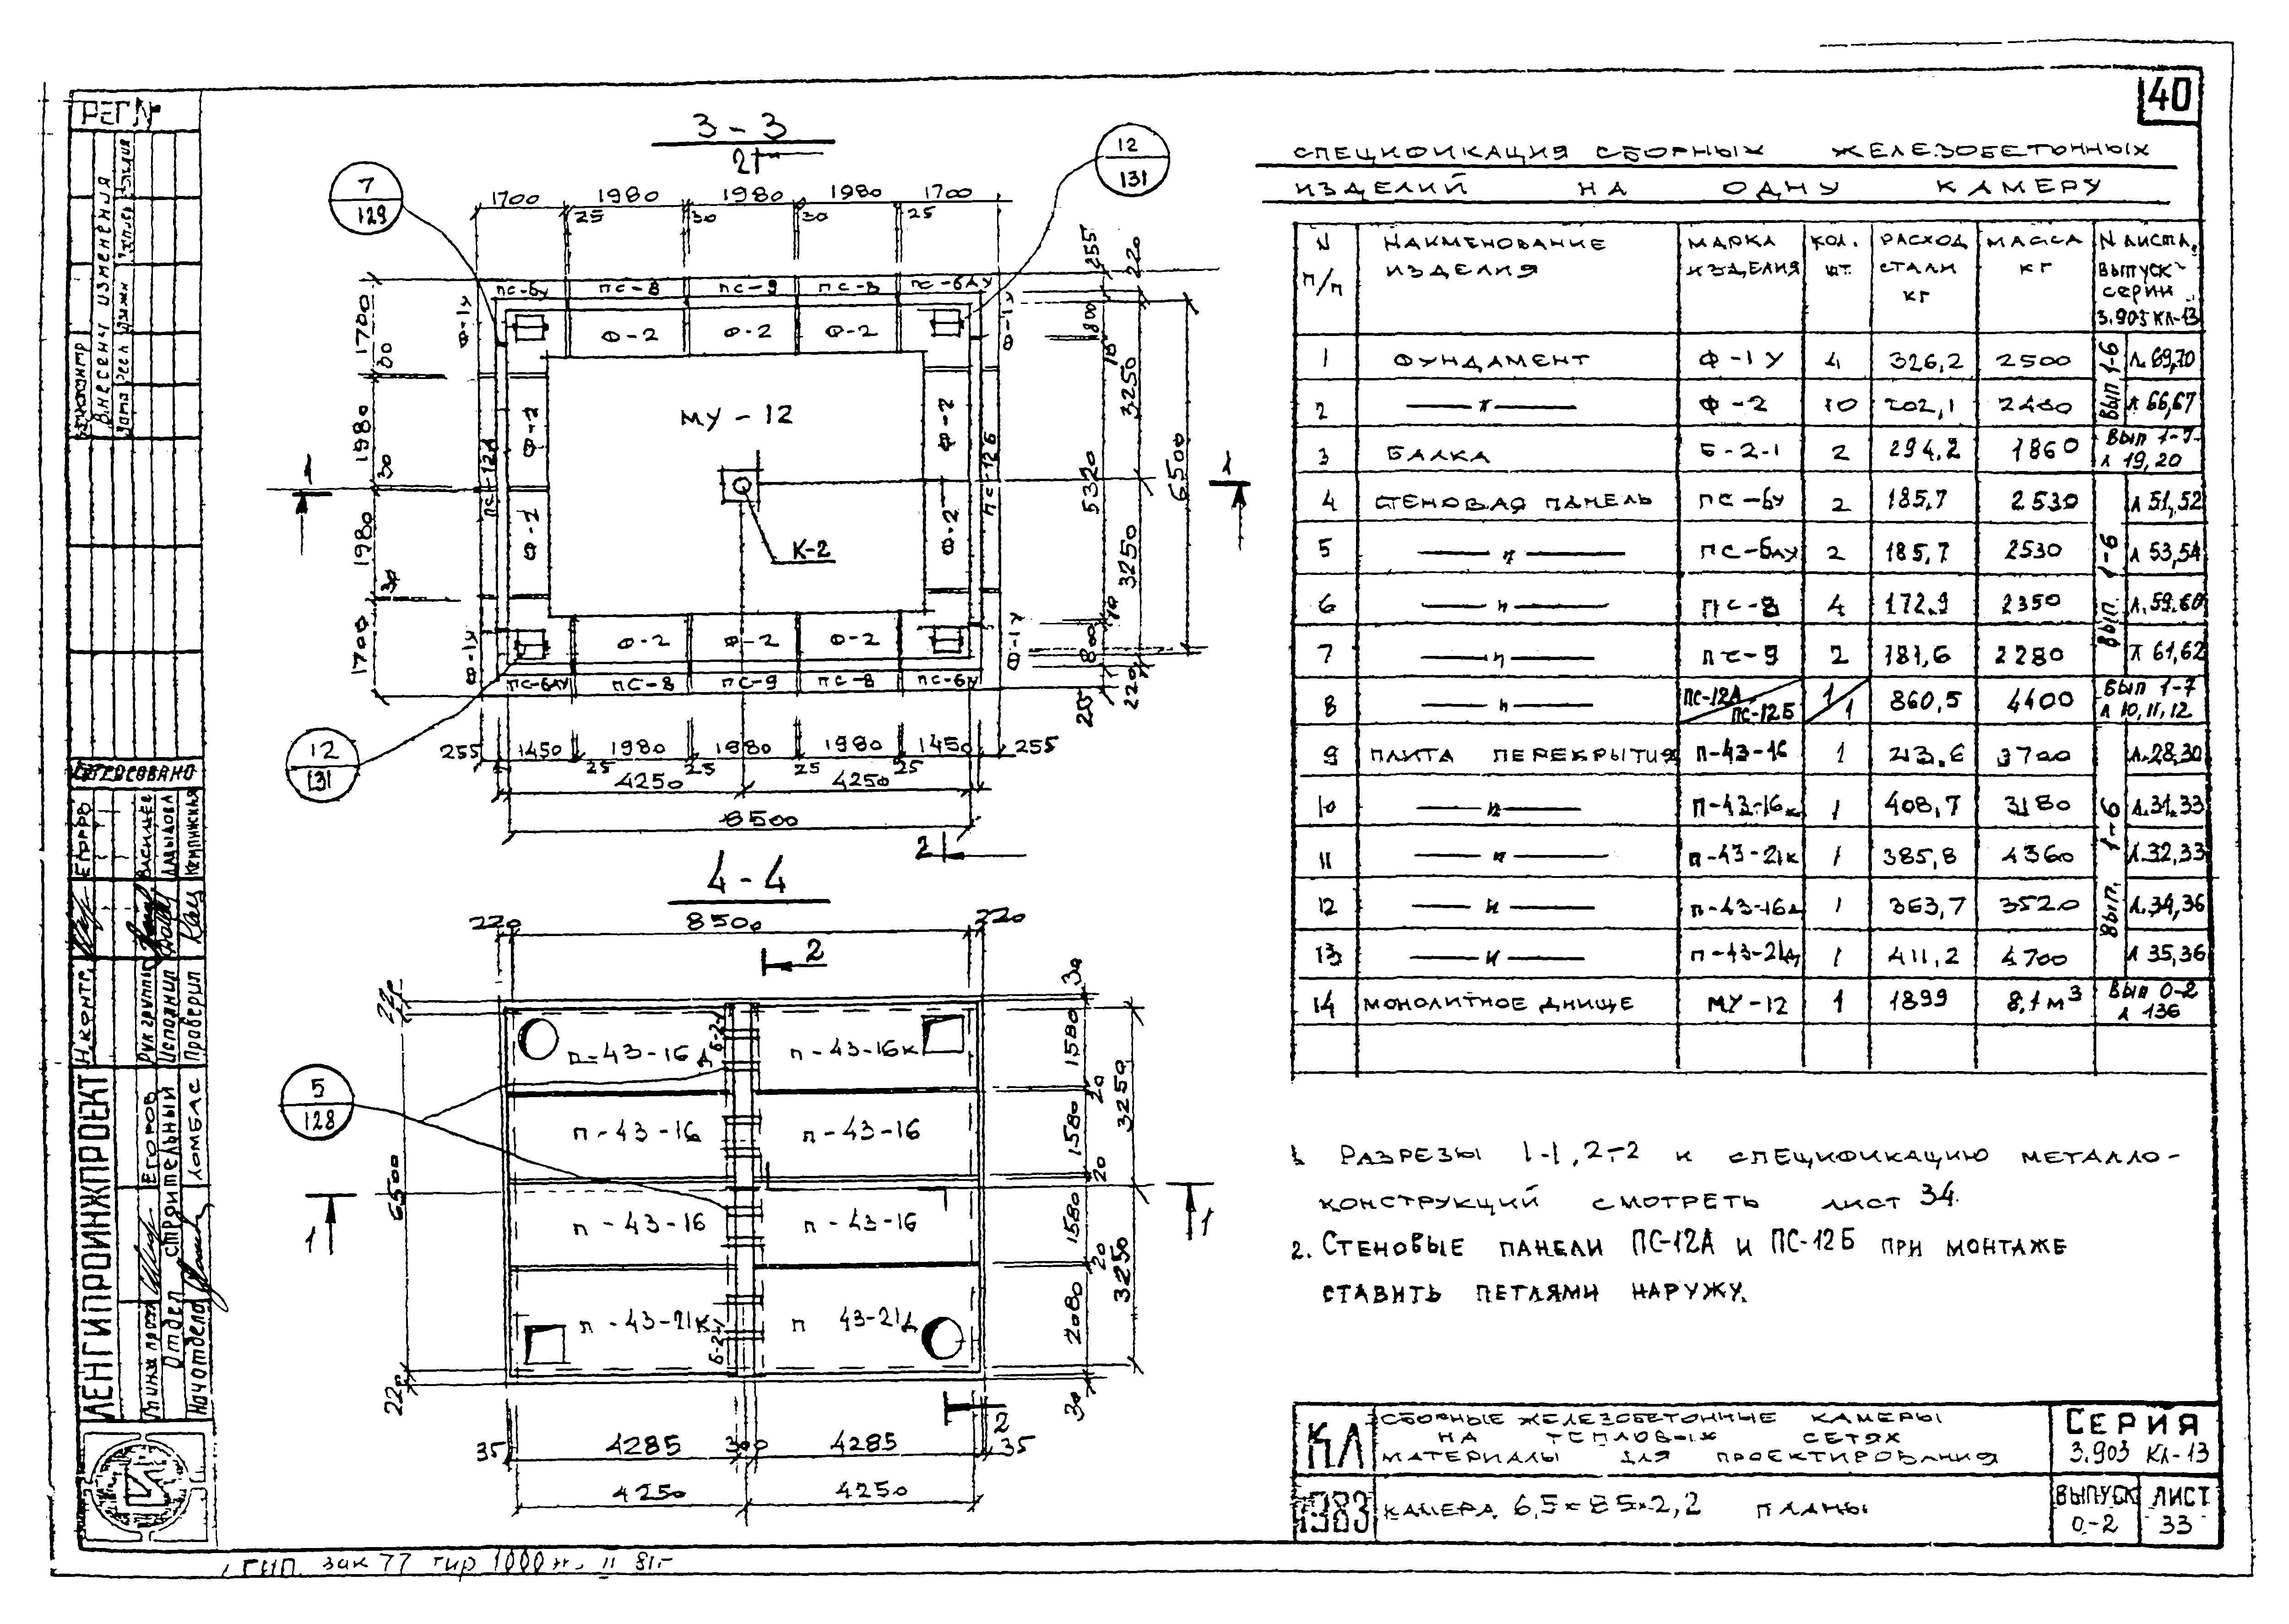 40
РЕГ №
3 - 3
2
7
129
12
131
1700 1980 1980 1980 1700
25 30 30 25
255
220
ПС-6У ПС-8 ПС-9 ПС-8 ПС-6АУ
Ф-1У Ф-2 Ф-2 Ф-2 Ф-1У
1700
30
1980
30
1980
30
1700
ПС-12А
Ф-2
Ф-2
МУ - 12
К-2
Ф-2
Ф-2
ПС-12Б
800
10
3250
5320
6500
3250
10
800
220
255
1
1
Ф-1У Ф-2 Ф-2 Ф-2 Ф-1У
ПС-6АУ ПС-8 ПС-9 ПС-8 ПС-6У
12
131
255 1450 1980 1980 1980 1450 255
25 25 25 25
4250 4250
8500
2
4 - 4
220 8500 220
2
220
30
П-43-16д Б-2-1 П-43-16к
1580
20
3250
5
128
П-43-16 П-43-16
1580
20
6500
1
1
П-43-16 П-43-16
1580
20
3250
П-43-21к Б-2-1 П 43-21д
2080
220
30
2
35 4285 300 4285 35
4250 4250
СПЕЦИФИКАЦИЯ СБОРНЫХ ЖЕЛЕЗОБЕТОННЫХ
ИЗДЕЛИЙ НА ОДНУ КАМЕРУ
N П/П НАИМЕНОВАНИЕ ИЗДЕЛИЯ МАРКА ИЗДЕЛИЯ КОЛ. ШТ. РАСХОД СТАЛИ КГ МАССА КГ N ЛИСТА, ВЫПУСК СЕРИИ 3.903 КЛ-13
1 ФУНДАМЕНТ Ф-1У 4 326,2 2500 ВЫП 1-6 Л. 69,70
2 — " — Ф-2 10 202,1 2400 Л 66,67
3 БАЛКА Б-2-1 2 294,2 1860 ВЫП 1-7 Л 19,20
4 СТЕНОВАЯ ПАНЕЛЬ ПС-6У 2 185,7 2530 ВЫП. 1-6 Л 51,52
5 — " — ПС-6АУ 2 185,7 2530 Л 53,54
6 — " — ПС-8 4 172.9 2350 Л.59.60
7 — " — ПС-9 2 181,6 2280 Л 61,62
8 — " — ПС-12А/ПС-12Б 1/1 860,5 4400 ВЫП 1-7 Л 10,11,12
9 ПЛИТА ПЕРЕКРЫТИЯ П-43-16 1 213.6 3700 ВЫП. 1-6 Л.28,30
10 — " — П-43-16к 1 408,7 3180 Л.31.33
11 — " — П-43-21к 1 385,8 4360 Л.32,33
12 — " — П-43-16д 1 363,7 3520 Л.34,36
13 — " — П-43-21д 1 411,2 4700 Л 35,36
14 МОНОЛИТНОЕ ДНИЩЕ МУ-12 1 1899 8,1 м3 ВЫП 0-2 Л 136
1. РАЗРЕЗЫ 1-1, 2-2 И СПЕЦИФИКАЦИЮ МЕТАЛЛО-
КОНСТРУКЦИЙ СМОТРЕТЬ ЛИСТ 34.
2. СТЕНОВЫЕ ПАНЕЛИ ПС-12А И ПС-12Б ПРИ МОНТАЖЕ
СТАВИТЬ ПЕТЛЯМИ НАРУЖУ.
КЛ
1983
СБОРНЫЕ ЖЕЛЕЗОБЕТОННЫЕ КАМЕРЫ
НА ТЕПЛОВЫХ СЕТЯХ
МАТЕРИАЛЫ ДЛЯ ПРОЕКТИРОВАНИЯ
КАМЕРА 6,5×8,5×2,2 ПЛАНЫ
СЕРИЯ
3.903 КЛ-13
ВЫПУСК 0-2
ЛИСТ 33
ВНЕСЕНЫ ИЗМЕНЕНИЯ
СОГЛАСОВАНО
ЕГОРОВ
ВАСИЛЬЕВ
ДАВЫДОВА
Н.контр.
Рук группы
Исполнил
Проверил
ЛЕНГИПРОИНЖПРОЕКТ
ЕГОРОВ
Отдел строительный
ЛОМБАС
Нач отдела
зак 77 тир 1000